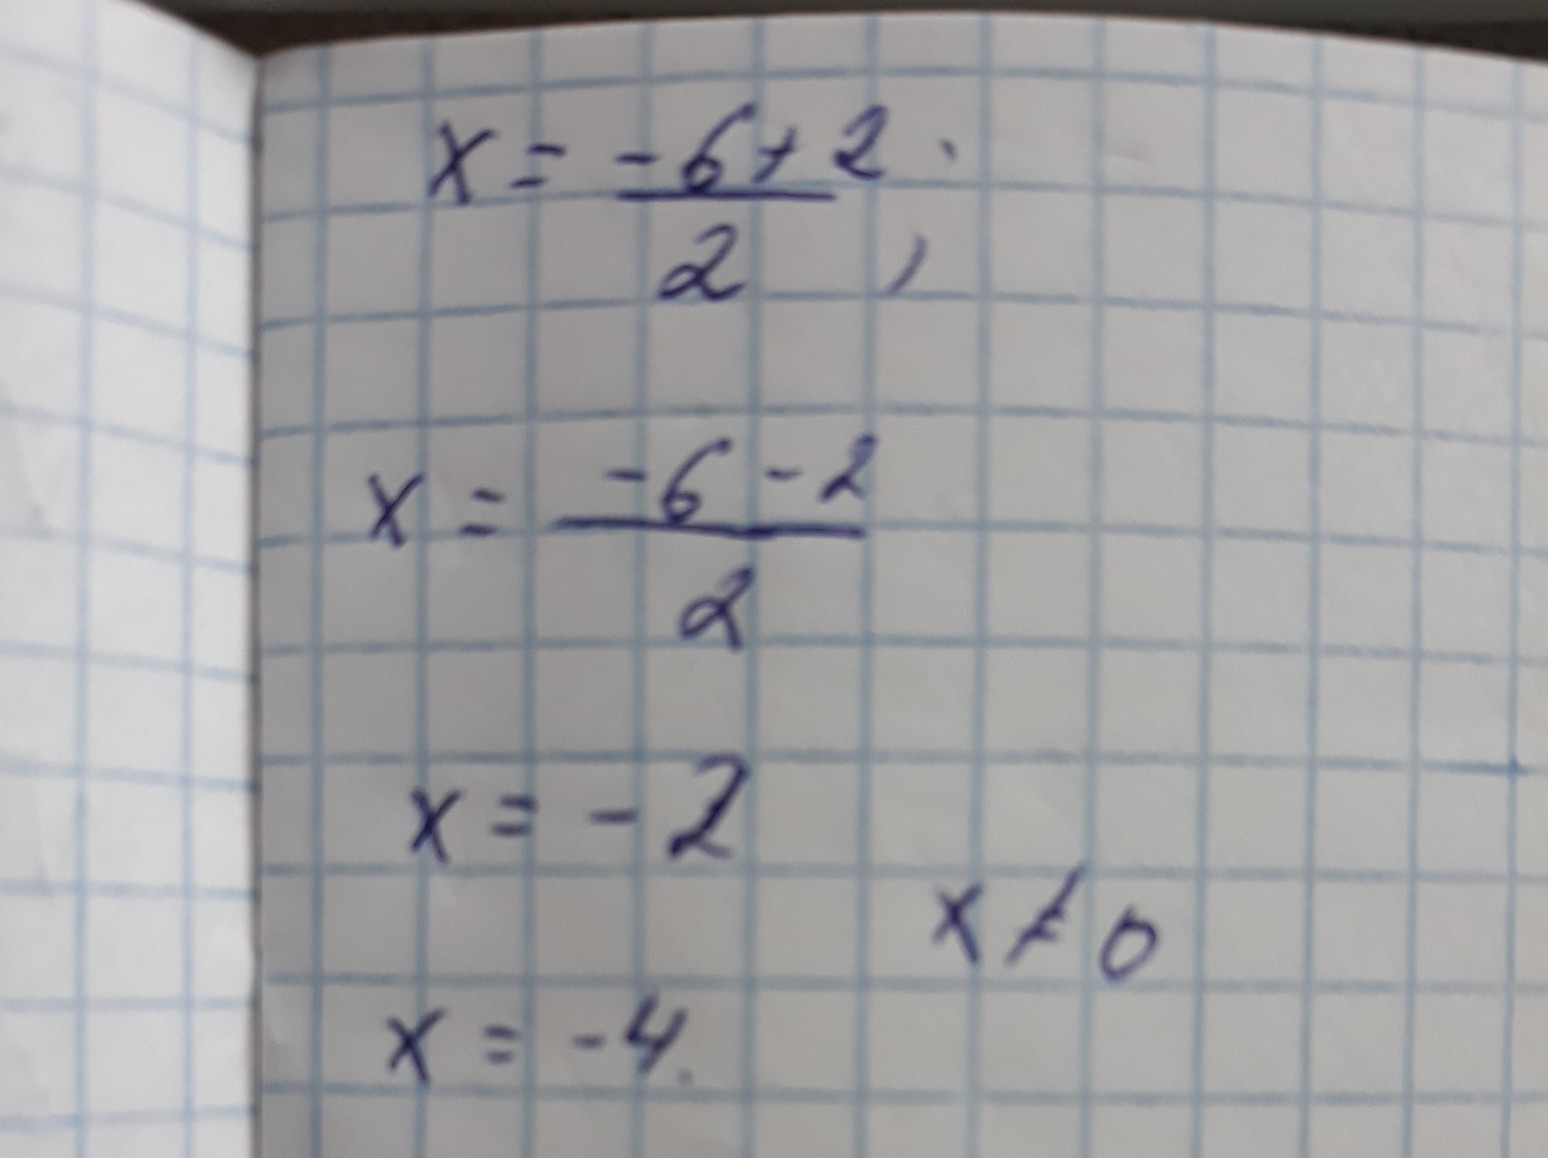 x = -6+2
2 ,
x = -6 - 2
2
x = - 2
x ≠ 0
x = -4.